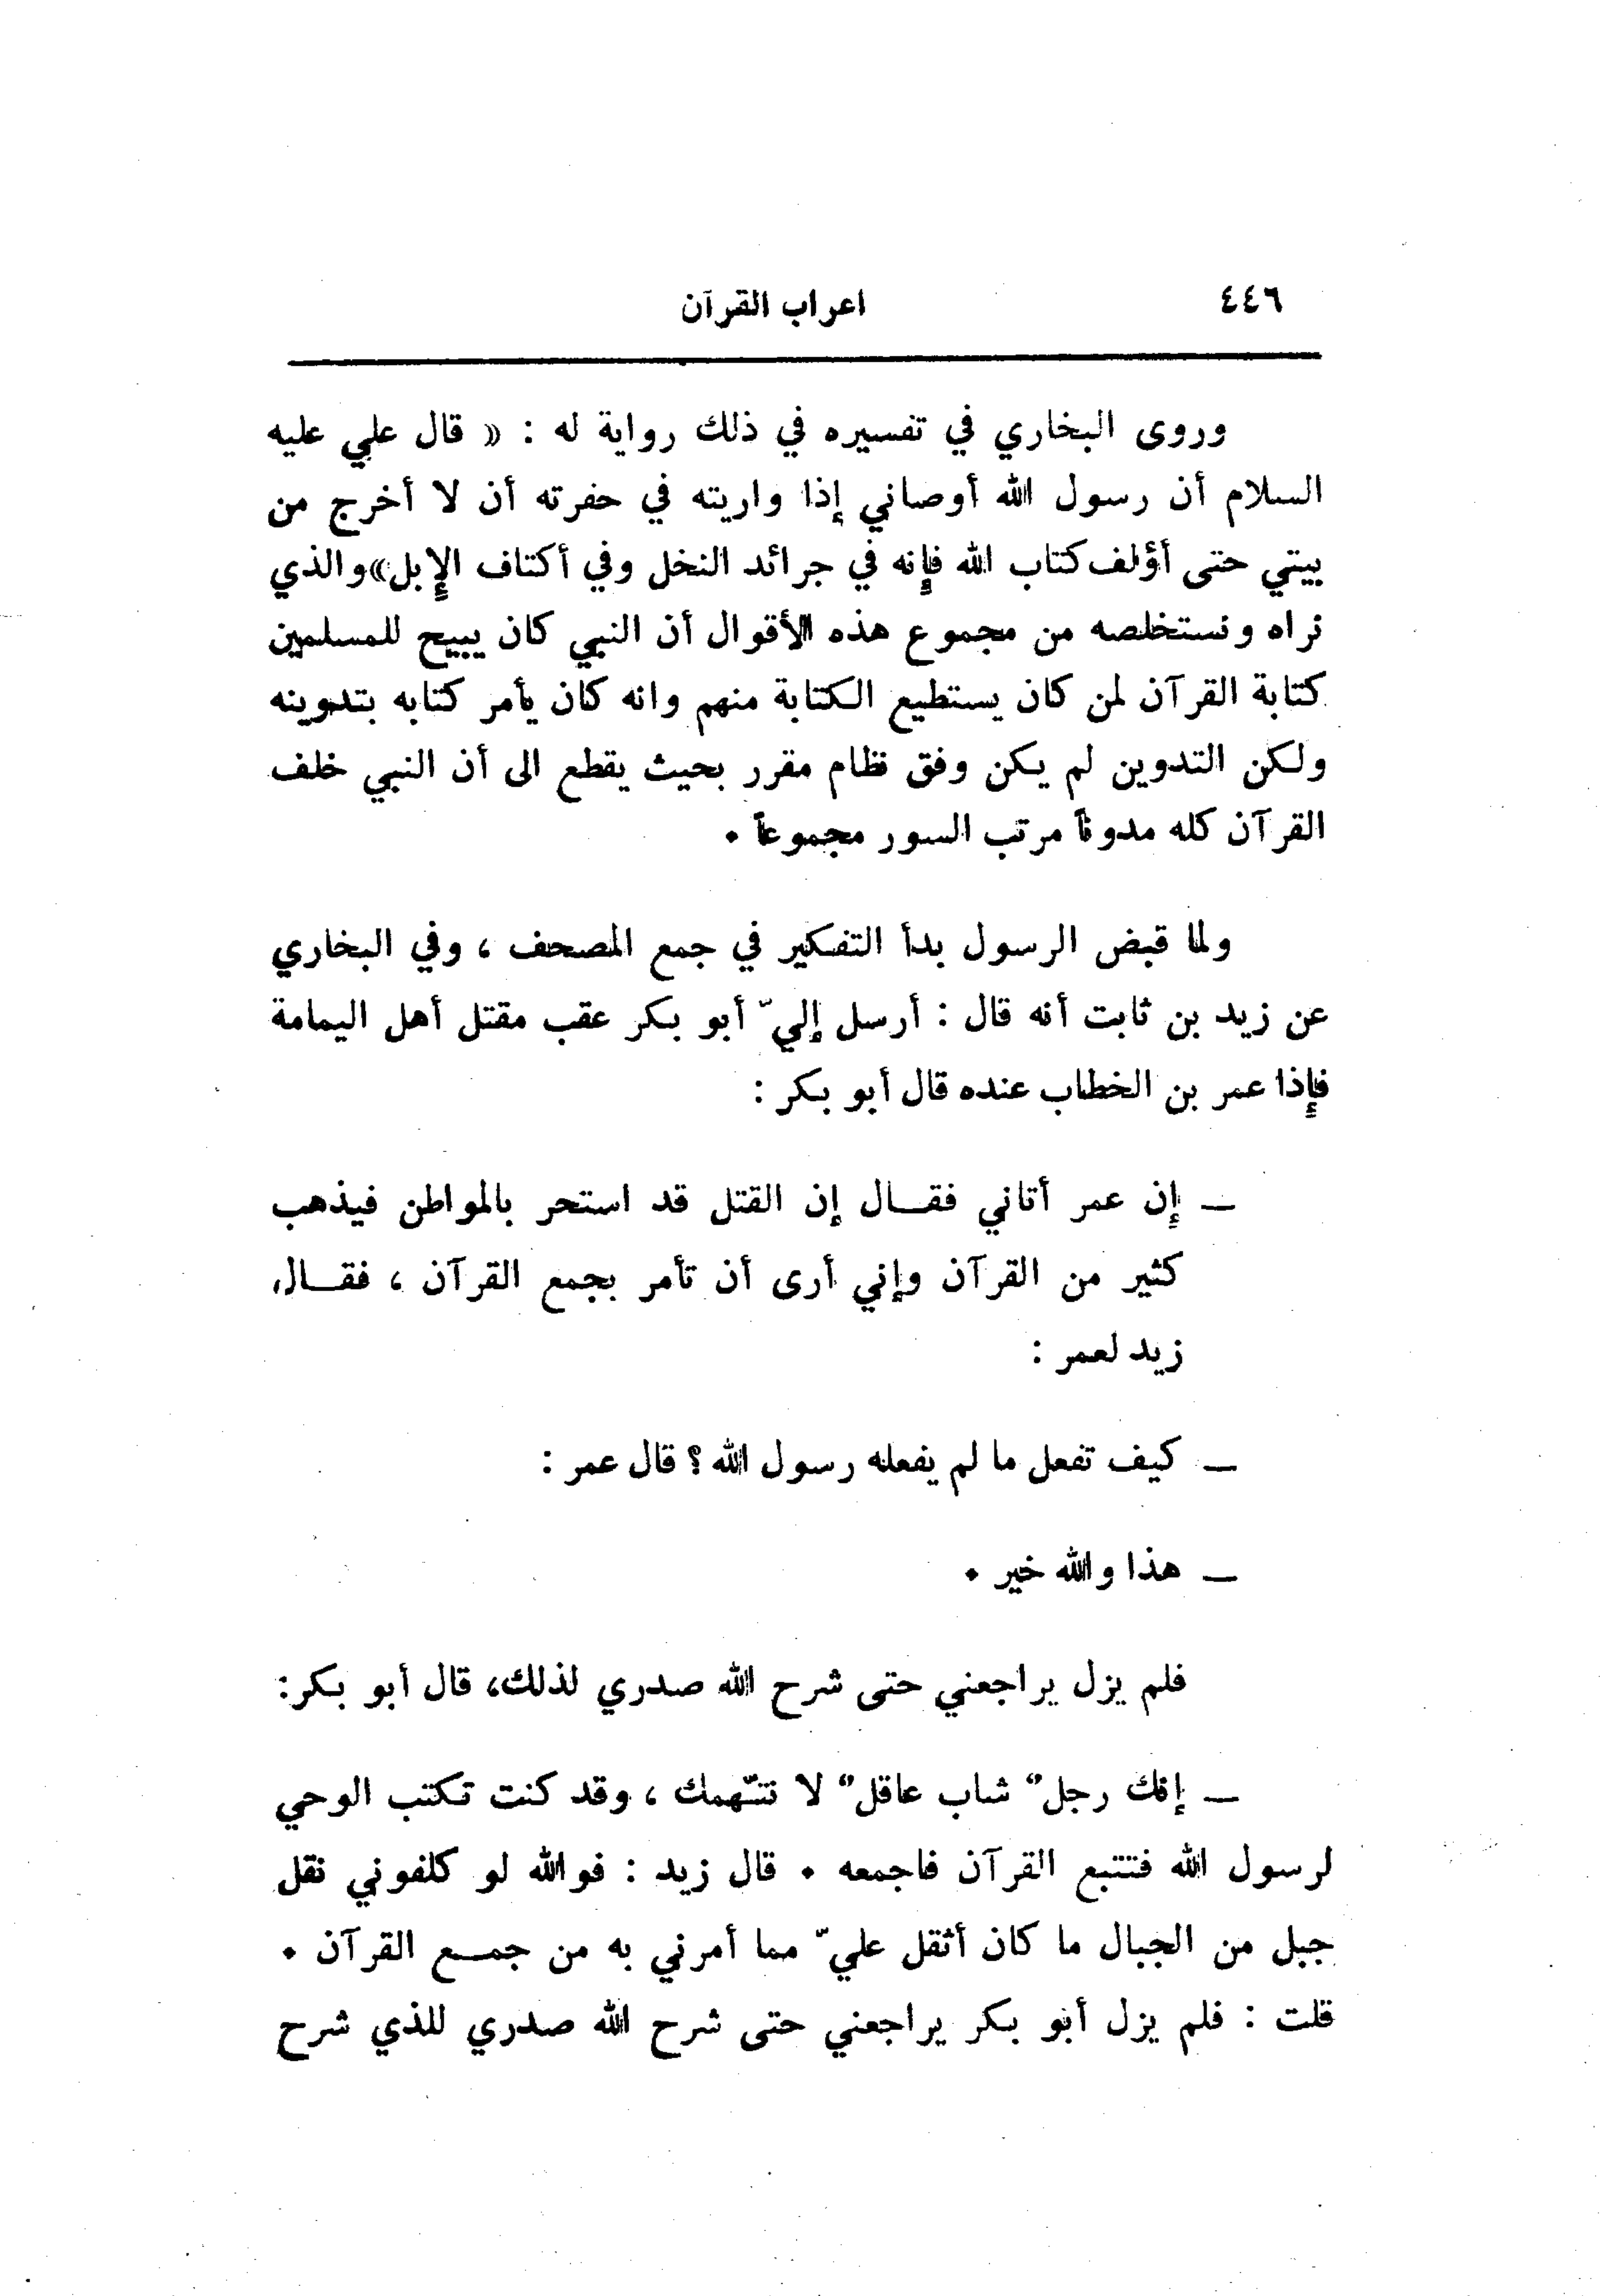 ٤٤٦ اعراب القرآن
وروى البخاري في تفسيره في ذلك رواية له : « قال علي عليه
السلام أن رسول الله أوصاني إذا واريته في حفرته أن لا أخرج من
بيتي حتى أؤلف كتاب الله فإنه في جرائد النخل وفي أكتاف الإبل» والذي
نراه ونستخلصه من مجموع هذه الأقوال أن النبي كان يبيح للمسلمين
كتابة القرآن لمن كان يستطيع الكتابة منهم وانه كان يأمر كتابه بتدوينه
ولكن التدوين لم يكن وفق نظام مقرر بحيث يقطع الى أن النبي خلف
القرآن كله مدوناً مرتب السور مجموعاً .
ولما قبض الرسول بدأ التفكير في جمع المصحف ، وفي البخاري
عن زيد بن ثابت أنه قال : أرسل إليّ أبو بكر عقب مقتل أهل اليمامة
فإذا عمر بن الخطاب عنده قال أبو بكر :
ــ إن عمر أتاني فقــال إن القتل قد استحر بالمواطن فيذهب
كثير من القرآن وإني أرى أن تأمر بجمع القرآن ، فقــال
زيد لعمر :
ــ كيف تفعل ما لم يفعله رسول الله ؟ قال عمر :
ــ هذا والله خير .
فلم يزل يراجعني حتى شرح الله صدري لذلك، قال أبو بكر:
ــ إنك رجلٌ شاب عاقلٌ لا نتّهمك ، وقد كنت تكتب الوحي
لرسول الله فتتبع القرآن فاجمعه . قال زيد : فوالله لو كلفوني نقل
جبل من الجبال ما كان أثقل عليّ مما أمرني به من جمــع القرآن .
قلت : فلم يزل أبو بكر يراجعني حتى شرح الله صدري للذي شرح